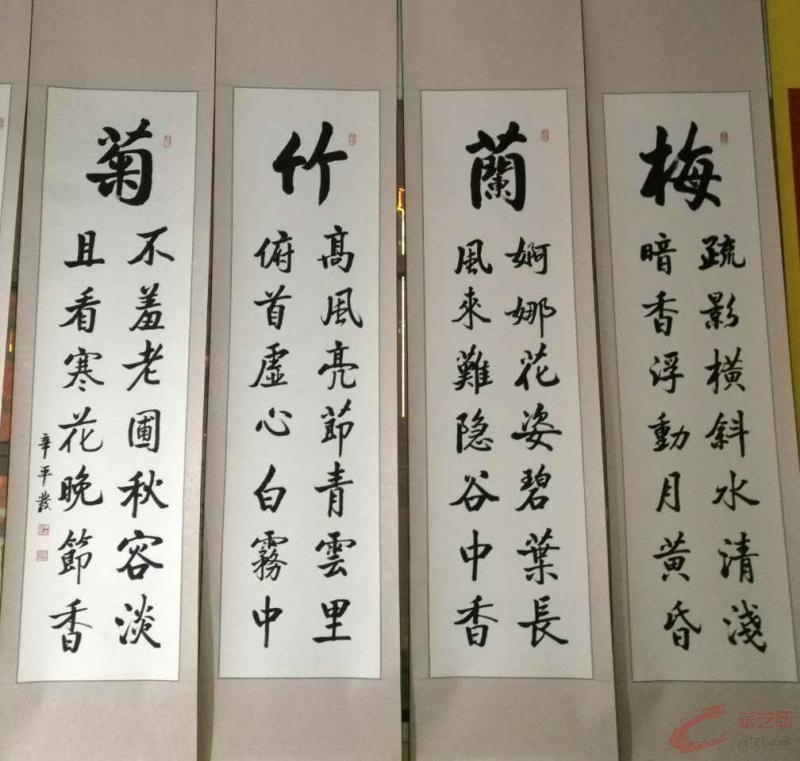 梅
疏影橫斜水清淺
暗香浮動月黄昏
蘭
婀娜花姿碧葉長
風來難隐谷中香
竹
高風亮節青雲里
俯首虛心白霧中
菊
不羞老圃秋容淡
且看寒花晚節香
辛平發